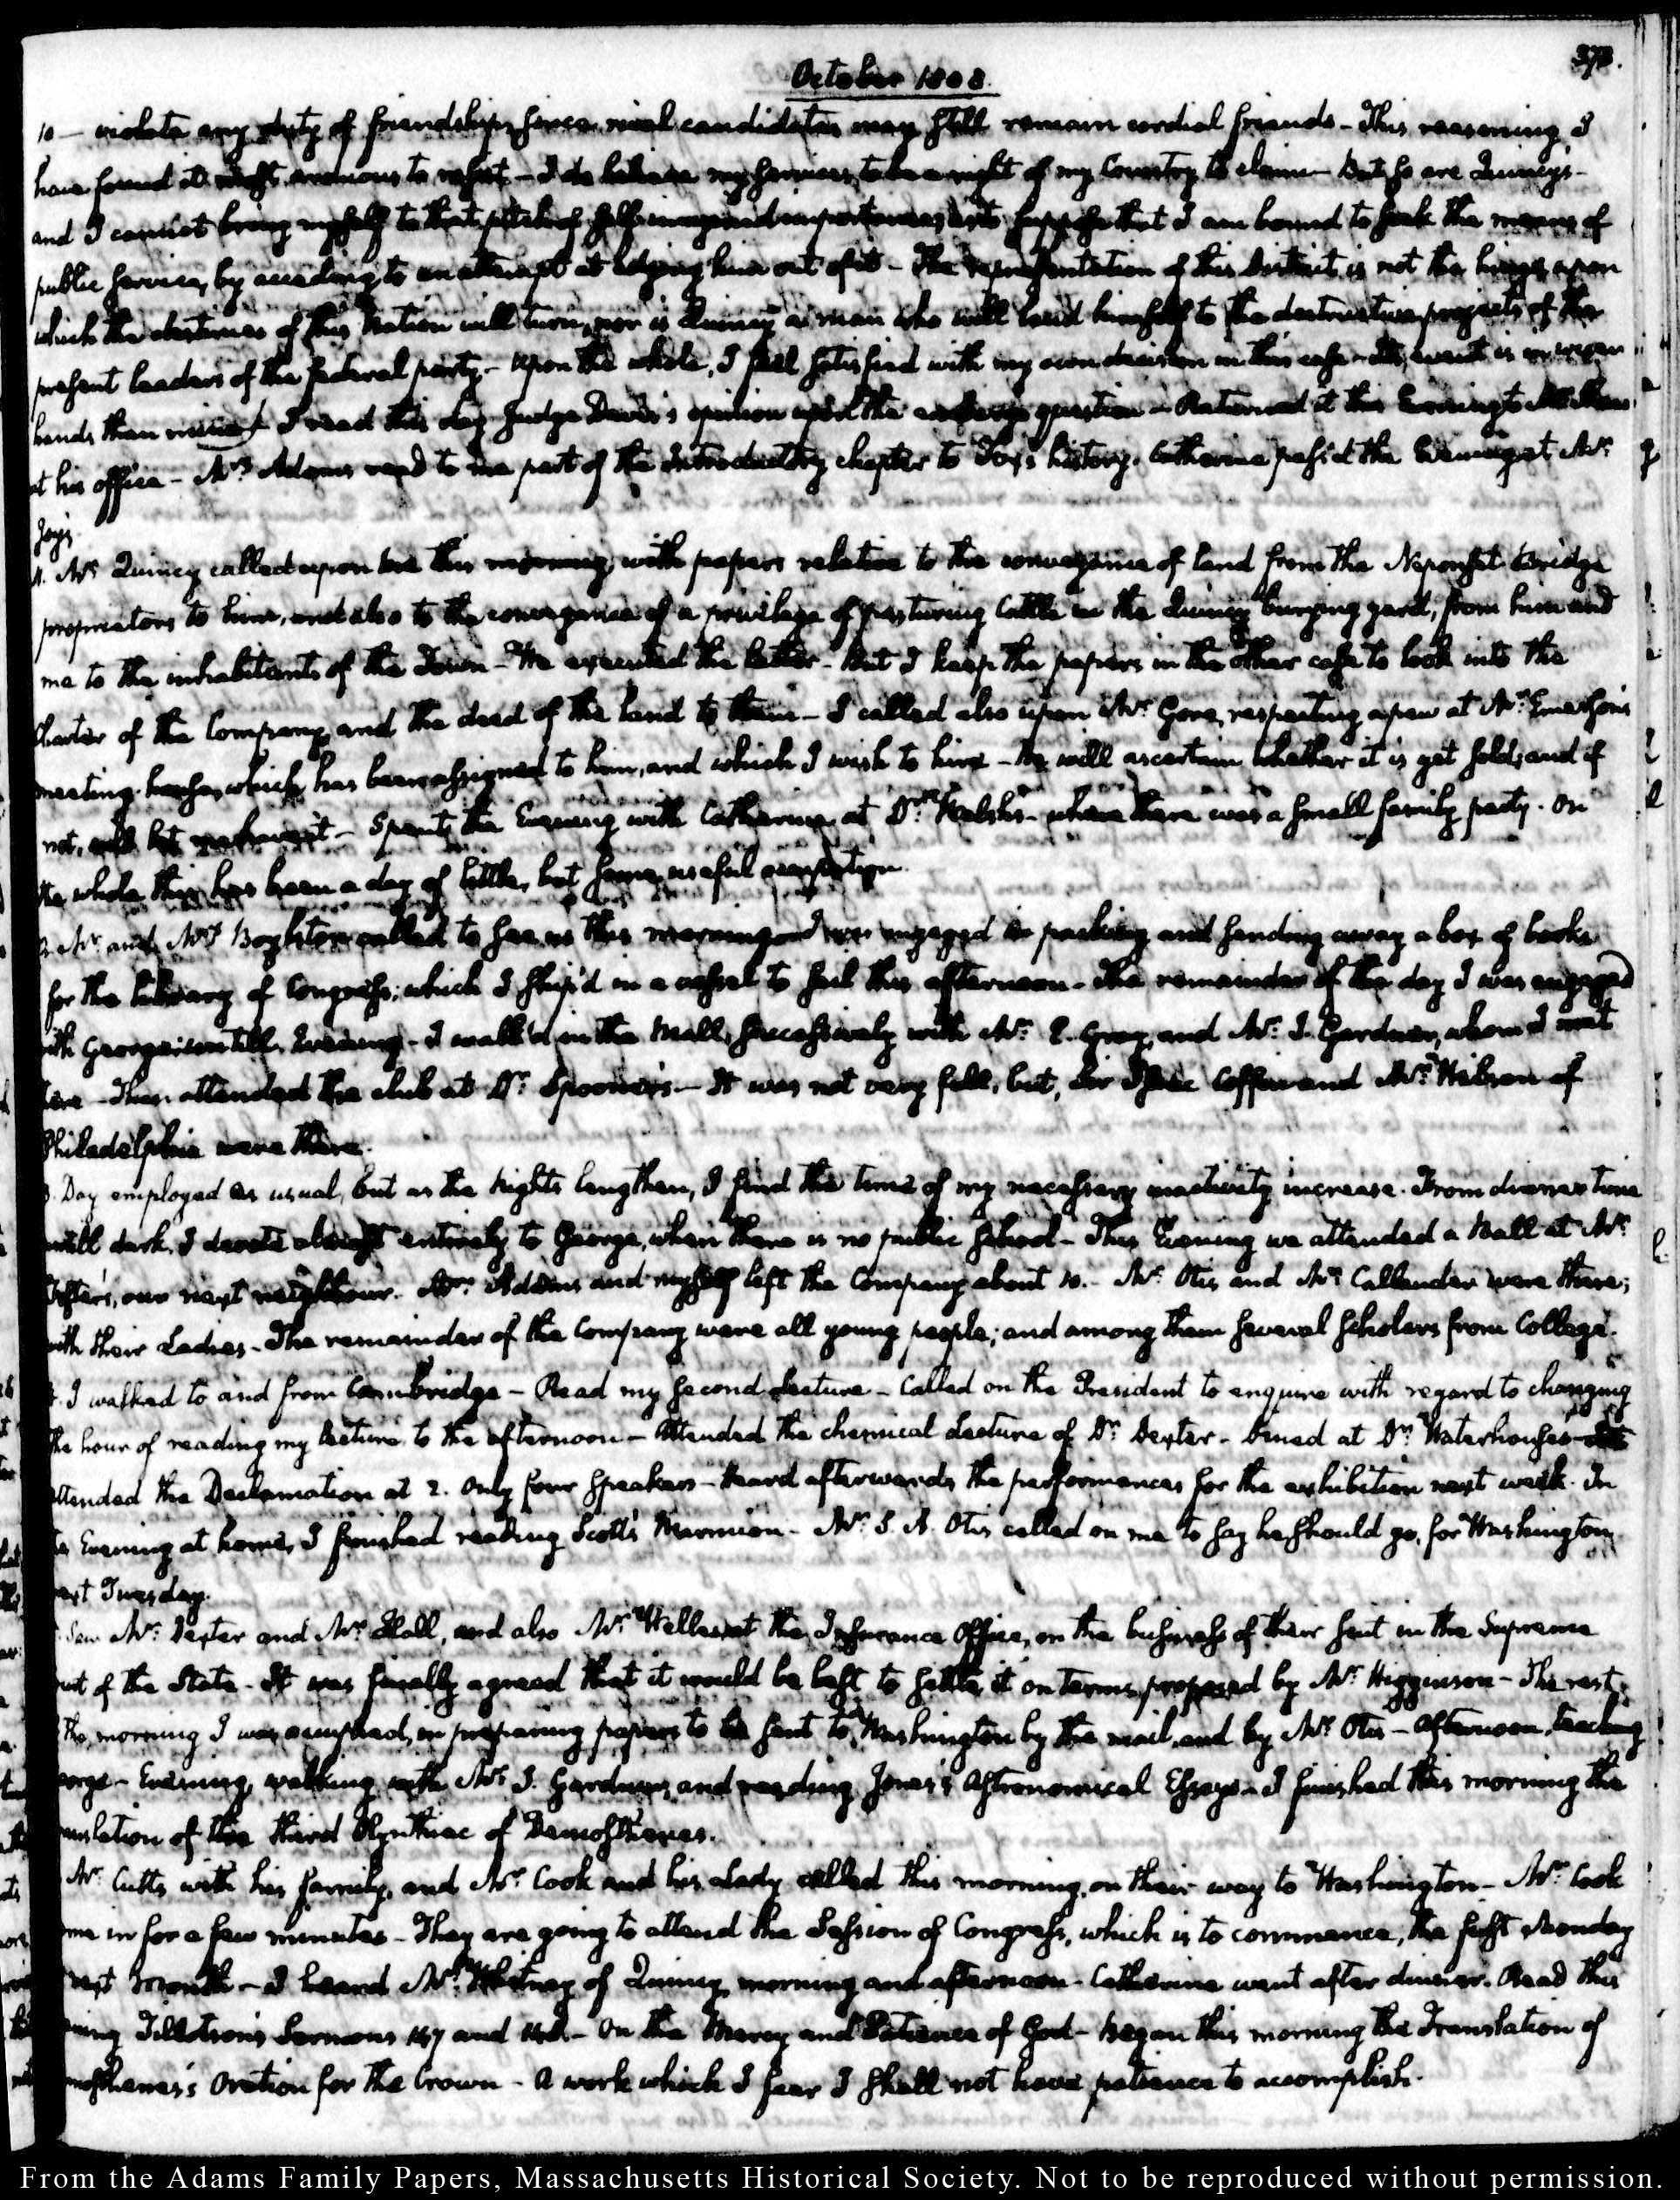 373.
October 1808.
10 — violate any duty of friendship, since rival candidates may still remain cordial friends - This reasoning I
have found it most arduous to resist - I do believe my services to be a right of my Country to claim - But so are Quincy's -
and I cannot bring myself to that pitch of self-imagined importance, as to suppose that I am bound to seek the means of
public service, by acceding to an attempt at lodging him out of it - The representation of this District is not the hinge upon
which the destinies of this Nation will turn, nor is Quincy a man who will lend himself to the destructive projects of the
present leaders of the federal party - Upon the whole, I feel satisfied with my own decision in this case - Its event is in wiser
hands than mine. I read this day Judge Davis's opinion upon the embargo question - Returned it this Evening to
at his office - Mrs. Adams read to me part of the Introductory chapter to Fox's history. Catherine pass'd the Evening at Mr.
Joy's
11. Mr. Quincy called upon me this morning, with papers relative to the conveyance of land from the Neponset Bridge
proprietors to him, and also to the conveyance of a privilege of pasturing Cattle in the Quincy burying yard, from him and
me to the inhabitants of the Town - We executed the latter - But I keep the papers in the other case to look into the
Charter of the Company, and the deed of the land to them - I called also upon Mr. Gore, respecting a pew at Mr. Emerson's
meeting-house, which has been assigned to him, and which I wish to hire - He will ascertain whether it is yet sold; and if
not, will let me have it - Spent the Evening with Catherine at Dr. Welsh's - where there was a small family party. On
the whole this has been a day of little, but some useful occupation.
2. Mr. and Mrs. Boylston called to see us this morning - I was engaged in packing and sending away a box of books
for the library of Congress; which I ship'd in a vessel to sail this afternoon - The remainder of the day I was engaged
with George until Evening - I walk'd in the Mall, successively with Mr. E. Gray, and Mr. J. Gardner, whom I met
there - Then attended the club at Dr. Spooner's - It was not very full, but, Sir Isaac Coffin and Mr. Wilson of
Philadelphia were there.
3. Day employed as usual, but as the Nights lengthen, I find the time of my necessary inactivity increase. From dinner time
until dark, I devote almost entirely to George, when there is no public School - This Evening we attended a Ball at Mr.
our next neighbour. Mrs. Adams and myself left the Company about 10. - Mr. Otis and Mr. Callender were there;
with their Ladies - The remainder of the Company were all young people; and among them several scholars from College.
4. I walked to and from Cambridge - Read my second Lecture - Called on the President to enquire with regard to changing
the hour of reading my Lecture to the afternoon - Attended the chemical Lecture of Dr. Dexter - Dined at Dr. Waterhouse's
attended the Declamation at 2. Only four speakers - Heard afterwards the performances for the exhibition next week. In
the Evening at home, I finished reading Scott's Marmion - Mr. S. A. Otis called on me to say he should go for Washington
next Tuesday.
Saw Mr. Dexter and Mr. Hall, and also Mr. Welles at the Insurance Office, on the business of their suit in the Supreme
Court of the State - It was finally agreed that it would be best to settle it on terms proposed by Mr. Higginson - The rest
the morning I was occupied, in preparing papers to be sent to Washington by the mail, and by Mr. Otis - Afternoon, teaching
George - Evening, walking with Mr. J. Gardner, and reading Jones's Astronomical Essays - I finished this morning the
translation of the third Olynthiac of Demosthenes.
Mr. Cutts with his family, and Mr. Cook and his Lady called this morning, on their way to Washington - Mr. Cook
came in for a few minutes - They are going to attend the Session of Congress, which is to commence, the first Monday
next month - I heard Mr. Whitney of Quincy morning and afternoon - Catherine went after dinner. Read this
evening Tillotson's Sermons 147 and 148 - On the Mercy and Patience of God - Began this morning the Translation of
Demosthenes's Oration for the Crown - A work which I fear I shall not have patience to accomplish.
From the Adams Family Papers, Massachusetts Historical Society. Not to be reproduced without permission.